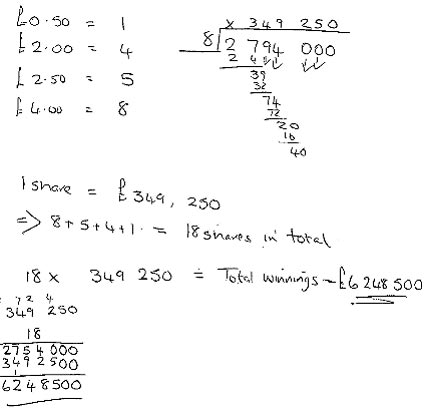 £0.50 = 1
£2.00 = 4
£2.50 = 5
£4.00 = 8
x 349 250
8 2 794 000
2 4
39
32
74
72
20
16
40
1 share = £349, 250
=> 8+5+4+1. = 18 shares in total
18 x 349 250 = Total winnings - £6 248 500
7 2 4
349 250
18
2754 000
349 2500
1
6248500